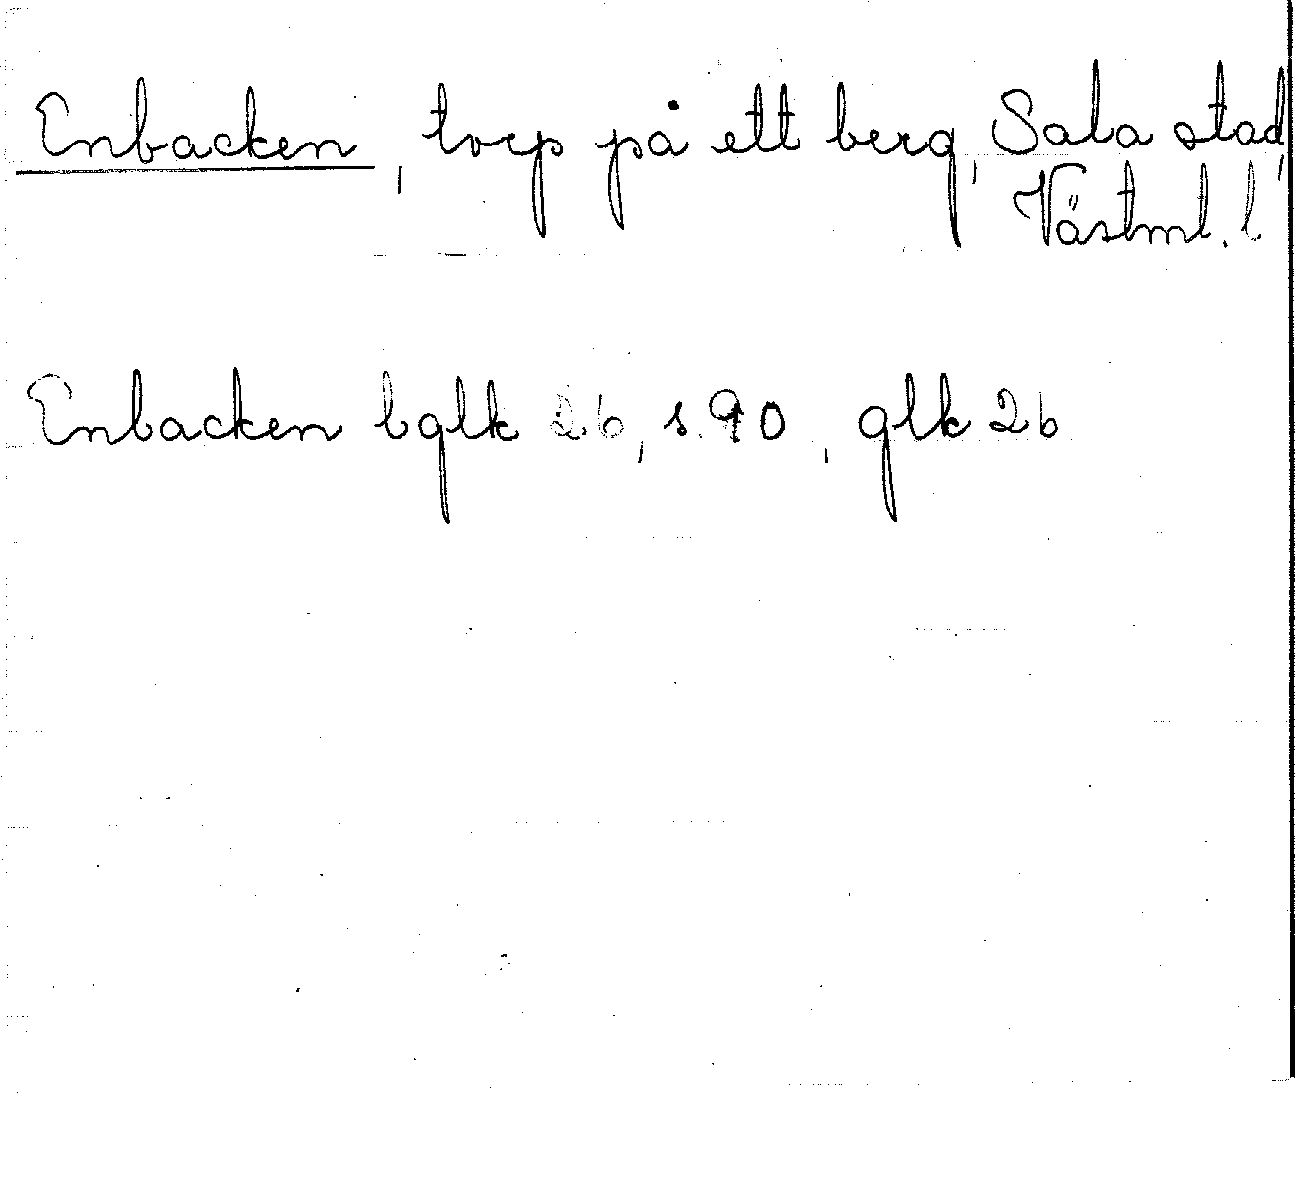 Enbacken, torp på ett berg, Sala stad,
Västml. l
Enbacken bglk 26, s. 90, glk 26